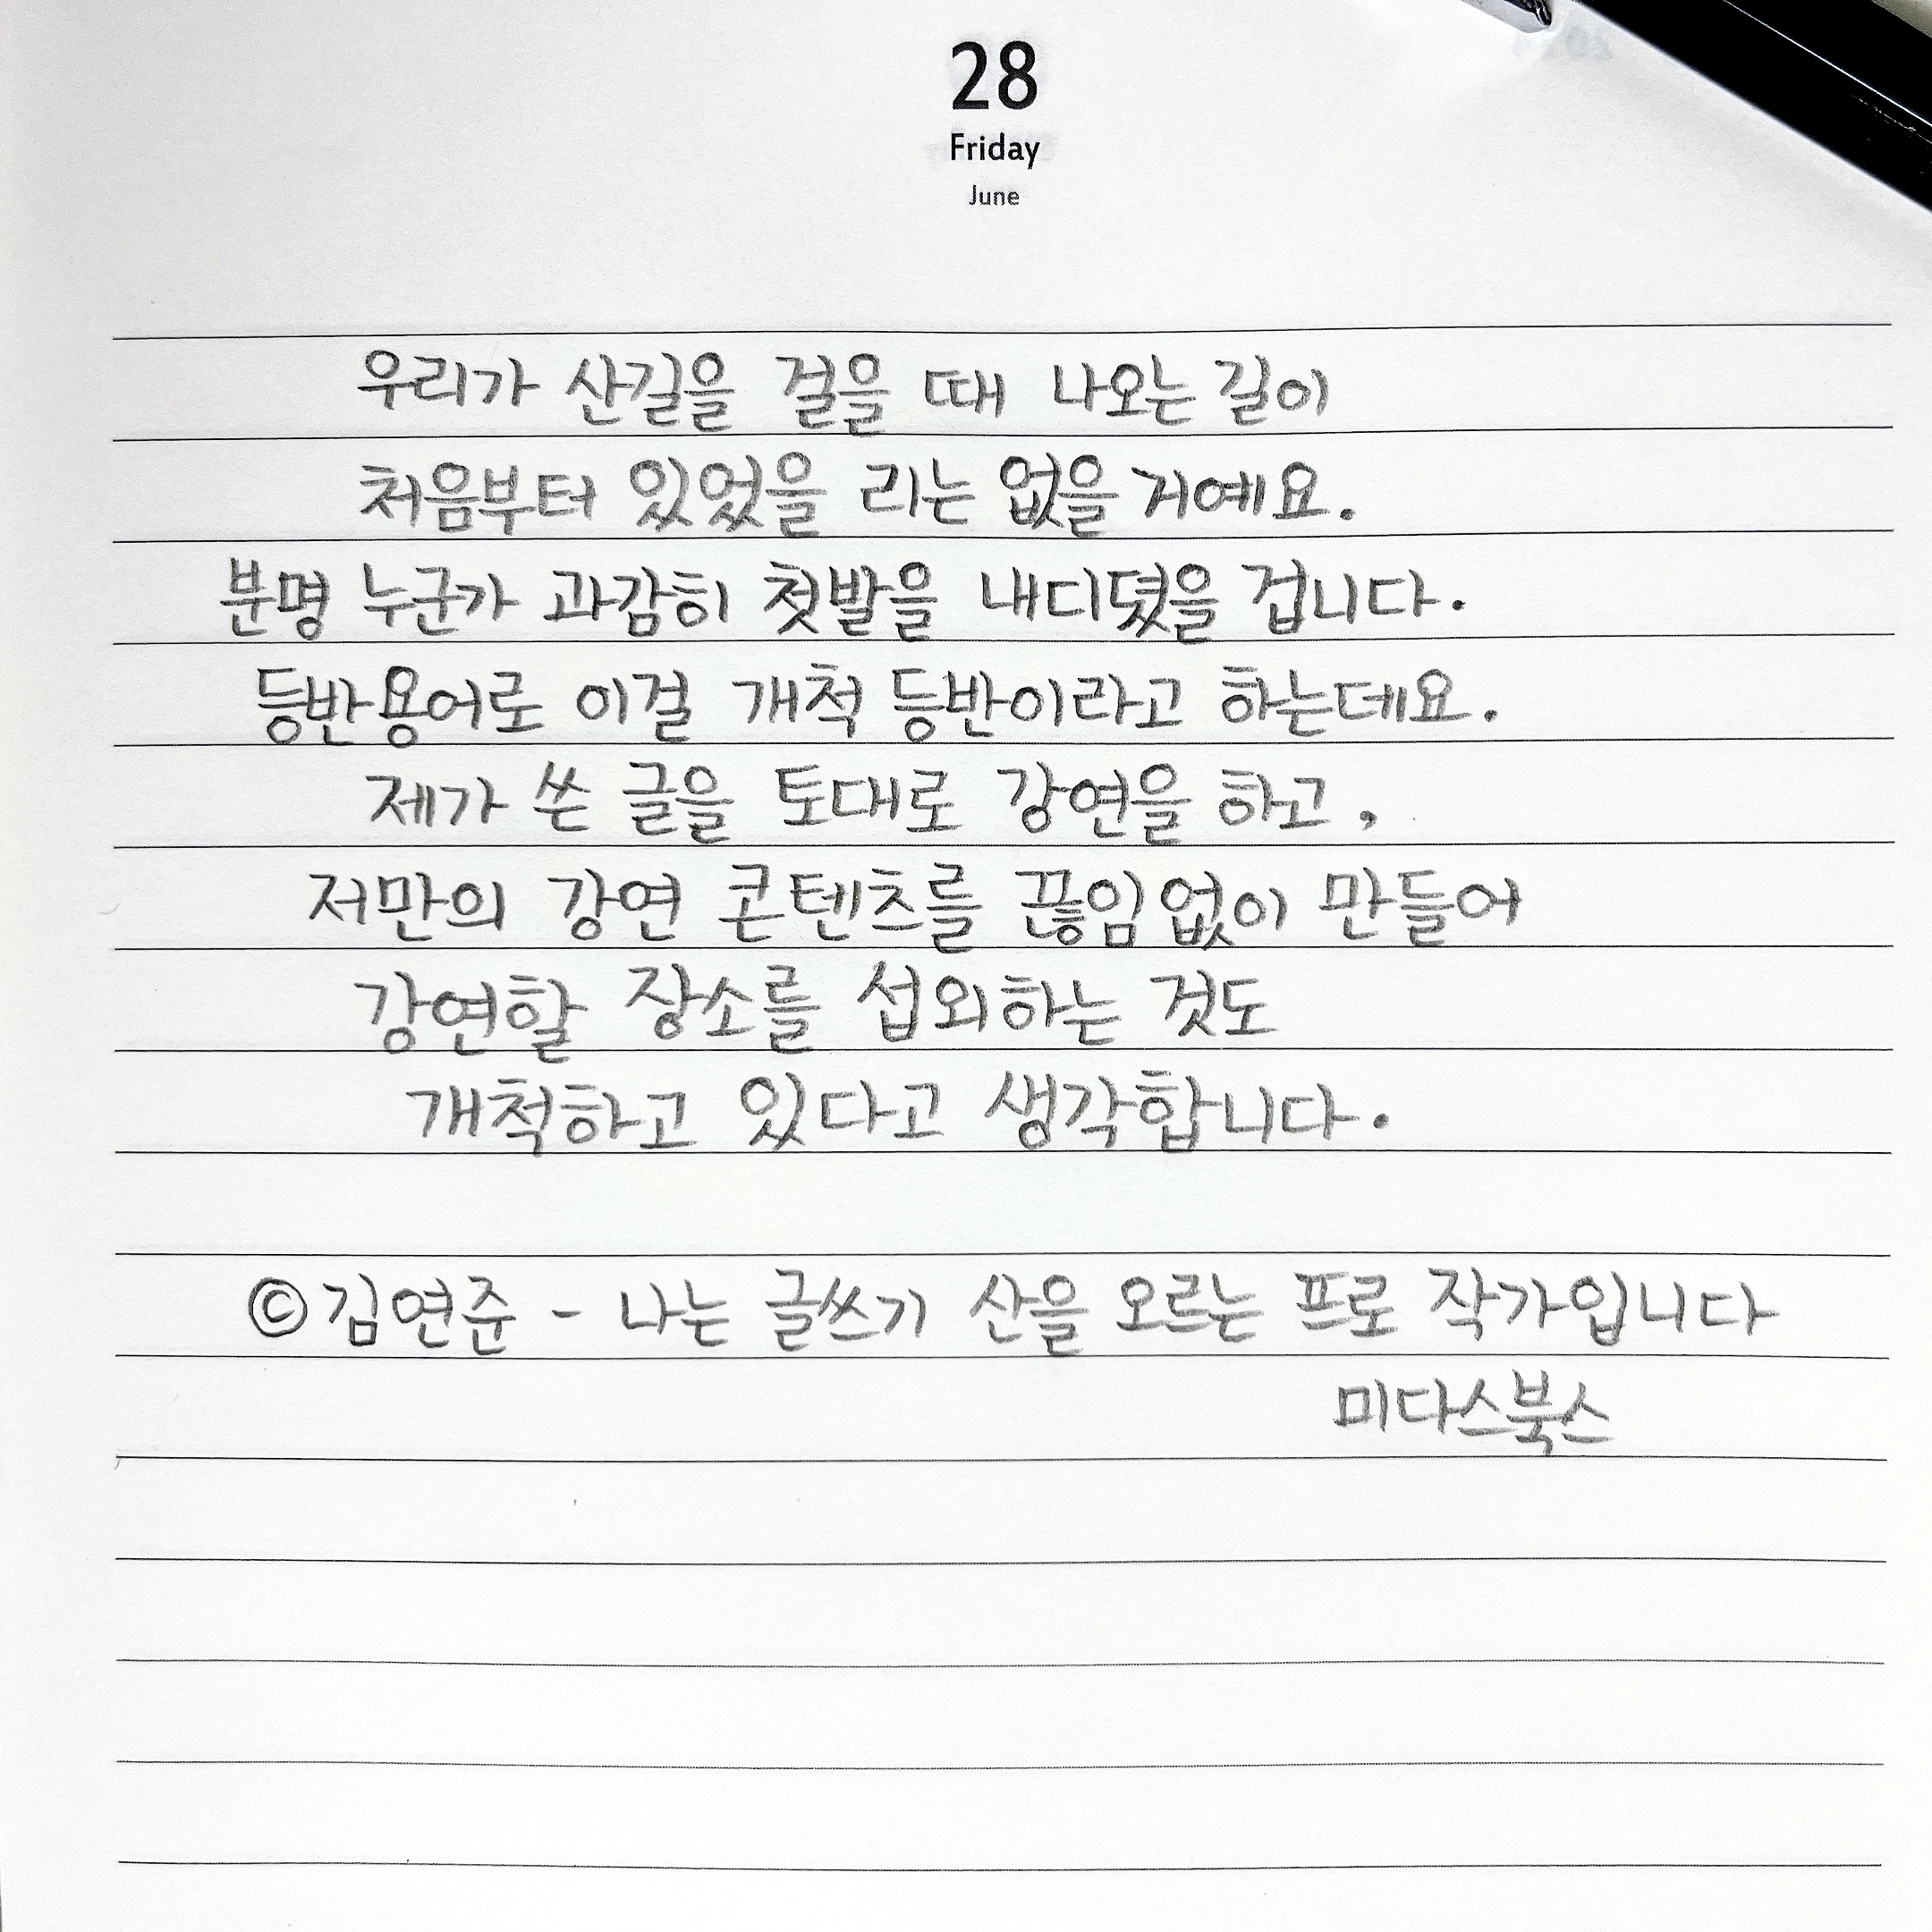 28
Friday
June
우리가 산길을 걸을 때 나오는 길이
처음부터 있었을 리는 없을 거예요.
분명 누군가 과감히 첫발을 내디뎠을 겁니다.
등반용어로 이걸 개척 등반이라고 하는데요.
제가 쓴 글을 토대로 강연을 하고,
저만의 강연 콘텐츠를 끊임없이 만들어
강연할 장소를 섭외하는 것도
개척하고 있다고 생각합니다.
©김연준 - 나는 글쓰기 산을 오르는 프로 작가입니다
미다스북스